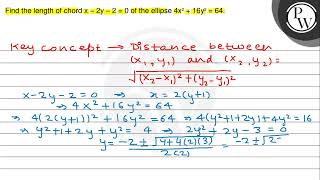 Find the length of chord x – 2y – 2 = 0 of the ellipse 4x² + 16y² = 64.
PW
Key concept → Distance between
(x₁, y₁) and (x₂, y₂) =
√(x₂-x₁)² + (y₂-y₁)²
x-2y-2=0 ⇒ x = 2(y+1)
⇒ 4x² + 16y² = 64
⇒ 4(2(y+1))² + 16y² = 64 ⇒ 4(y²+1+2y)+4y² = 16
⇒ y²+1+2y+y² = 4 ⇒ 2y²+2y-3=0
y = -2 ± √4+4(2)(3) / 2(2) = -2 ± √2